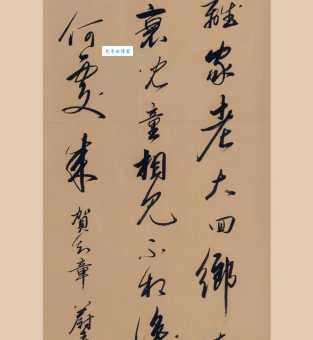 離家老大回鄉
衰兒童相見不相識
何處來 賀知章